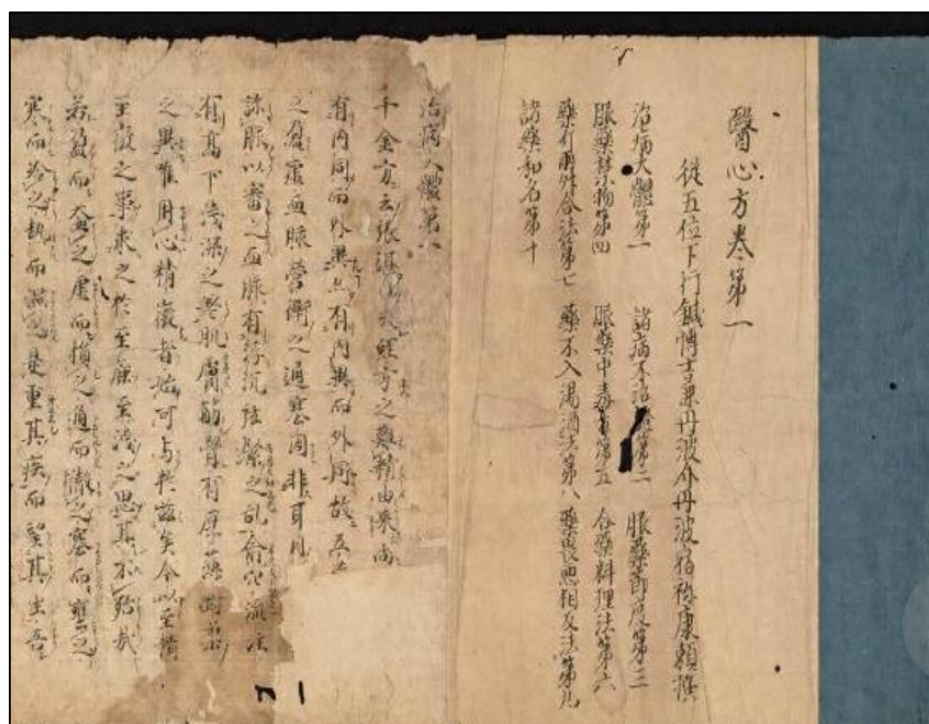 醫心方卷第一
從五位下行鍼博士兼丹波介丹波宿祢康頼撰
治病大體第一 諸病不治證第二 服藥節度第三
服藥禁物第四 服藥中毒方第五 合藥料理法第六
藥斤兩升合法第七 藥不入湯酒法第八 藥畏惡相反法第九
諸藥和名第十
治病大體第一
千金方云張湛曰夫經方之難精由來尚
有内同而外異亦有内異而外同故五
之盈虛血脉營衛之通塞固非耳目
診脉以審之血脉有浮沉弦緊之乱俞穴流注
有髙下淺深之差肌膚筋骨有厚薄
之異唯用心精微者始可与於茲矣今以至精
至微之事求之於至麁至淺之思其不殆哉
若盈而益之虛而損之通而徹之塞而壅之
寒而冷之熱而温之是重其疾而望其生吾